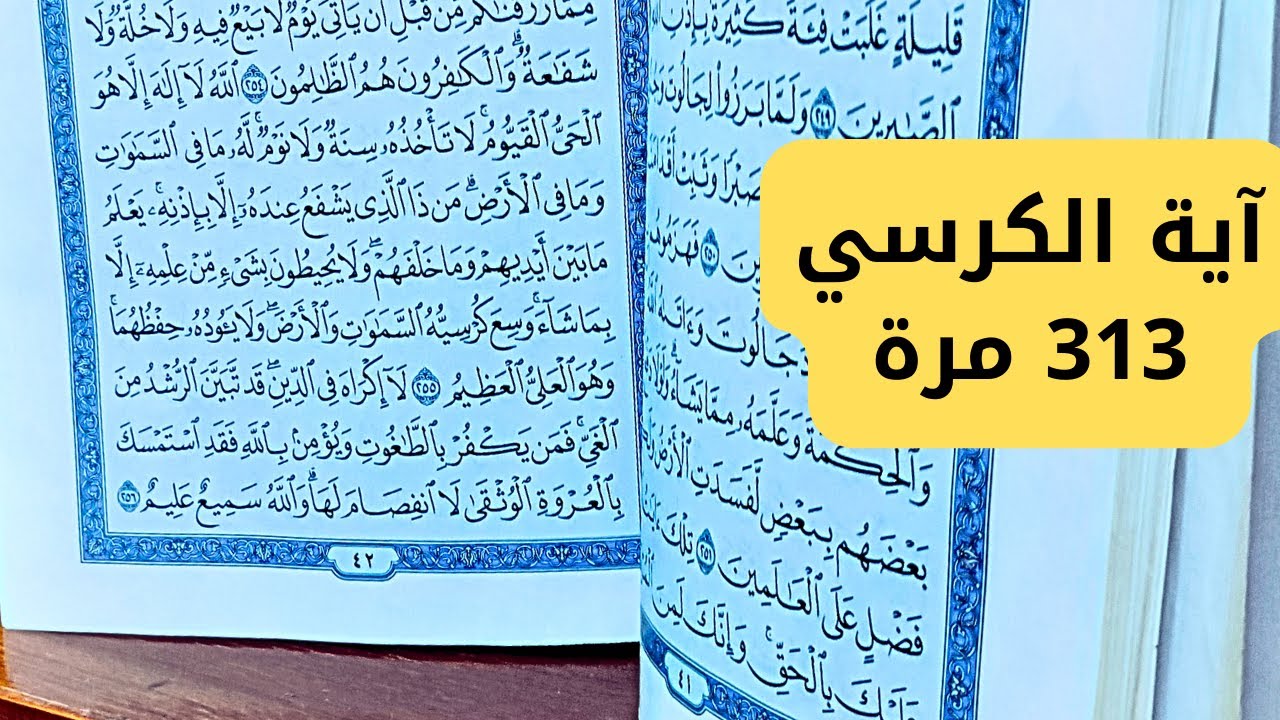 آية الكرسي
313 مرة
قَلِيلَةٍ غَلَبَتْ فِئَةً كَثِيرَةً بِإِذْنِ
ٱلصَّٰبِرِينَ ٢٤٩ وَلَمَّا بَرَزُوا۟ لِجَالُوتَ
صَبْرًا وَثَبِّتْ
٢٥٠
جَالُوتَ وَءَاتَىٰهُ
وَٱلْحِكْمَةَ وَعَلَّمَهُۥ مِمَّا يَشَآءُ وَلَوْلَا
بَعْضَهُم بِبَعْضٍ لَّفَسَدَتِ ٱلْأَرْضُ
فَضْلٍ عَلَى ٱلْعَٰلَمِينَ ٢٥١ تِلْكَ
عَلَيْكَ بِٱلْحَقِّ ۚ وَإِنَّكَ لَمِنَ
٤١
مِمَّا رَزَقْنَٰكُم مِّن قَبْلِ أَن يَأْتِىَ يَوْمٌ لَّا بَيْعٌ فِيهِ وَلَا خُلَّةٌ وَلَا
شَفَٰعَةٌ ۗ وَٱلْكَٰفِرُونَ هُمُ ٱلظَّٰلِمُونَ ٢٥٤ ٱللَّهُ لَآ إِلَٰهَ إِلَّا هُوَ
ٱلْحَىُّ ٱلْقَيُّومُ ۚ لَا تَأْخُذُهُۥ سِنَةٌ وَلَا نَوْمٌ ۚ لَّهُۥ مَا فِى ٱلسَّمَٰوَٰتِ
وَمَا فِى ٱلْأَرْضِ ۗ مَن ذَا ٱلَّذِى يَشْفَعُ عِندَهُۥٓ إِلَّا بِإِذْنِهِۦ ۚ يَعْلَمُ
مَا بَيْنَ أَيْدِيهِمْ وَمَا خَلْفَهُمْ ۖ وَلَا يُحِيطُونَ بِشَىْءٍ مِّنْ عِلْمِهِۦٓ إِلَّا
بِمَا شَآءَ ۚ وَسِعَ كُرْسِيُّهُ ٱلسَّمَٰوَٰتِ وَٱلْأَرْضَ ۖ وَلَا يَـُٔودُهُۥ حِفْظُهُمَا ۚ
وَهُوَ ٱلْعَلِىُّ ٱلْعَظِيمُ ٢٥٥ لَآ إِكْرَاهَ فِى ٱلدِّينِ ۖ قَد تَّبَيَّنَ ٱلرُّشْدُ مِنَ
ٱلْغَىِّ ۚ فَمَن يَكْفُرْ بِٱلطَّٰغُوتِ وَيُؤْمِنۢ بِٱللَّهِ فَقَدِ ٱسْتَمْسَكَ
بِٱلْعُرْوَةِ ٱلْوُثْقَىٰ لَا ٱنفِصَامَ لَهَا ۗ وَٱللَّهُ سَمِيعٌ عَلِيمٌ ٢٥٦
٤٢